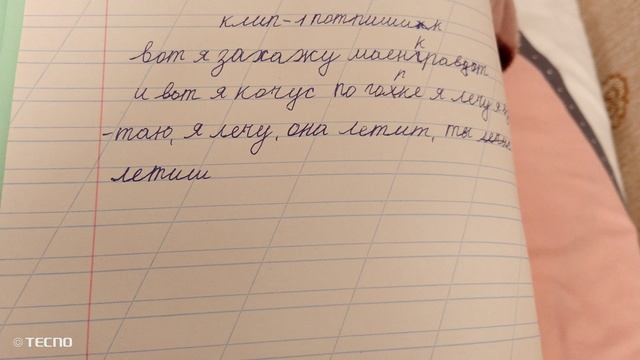 клип-1 потпишик
вот я захажу
и вот я кочус по я лечу я
-таю, я лечу, она летит, ты
летиш
TECNO